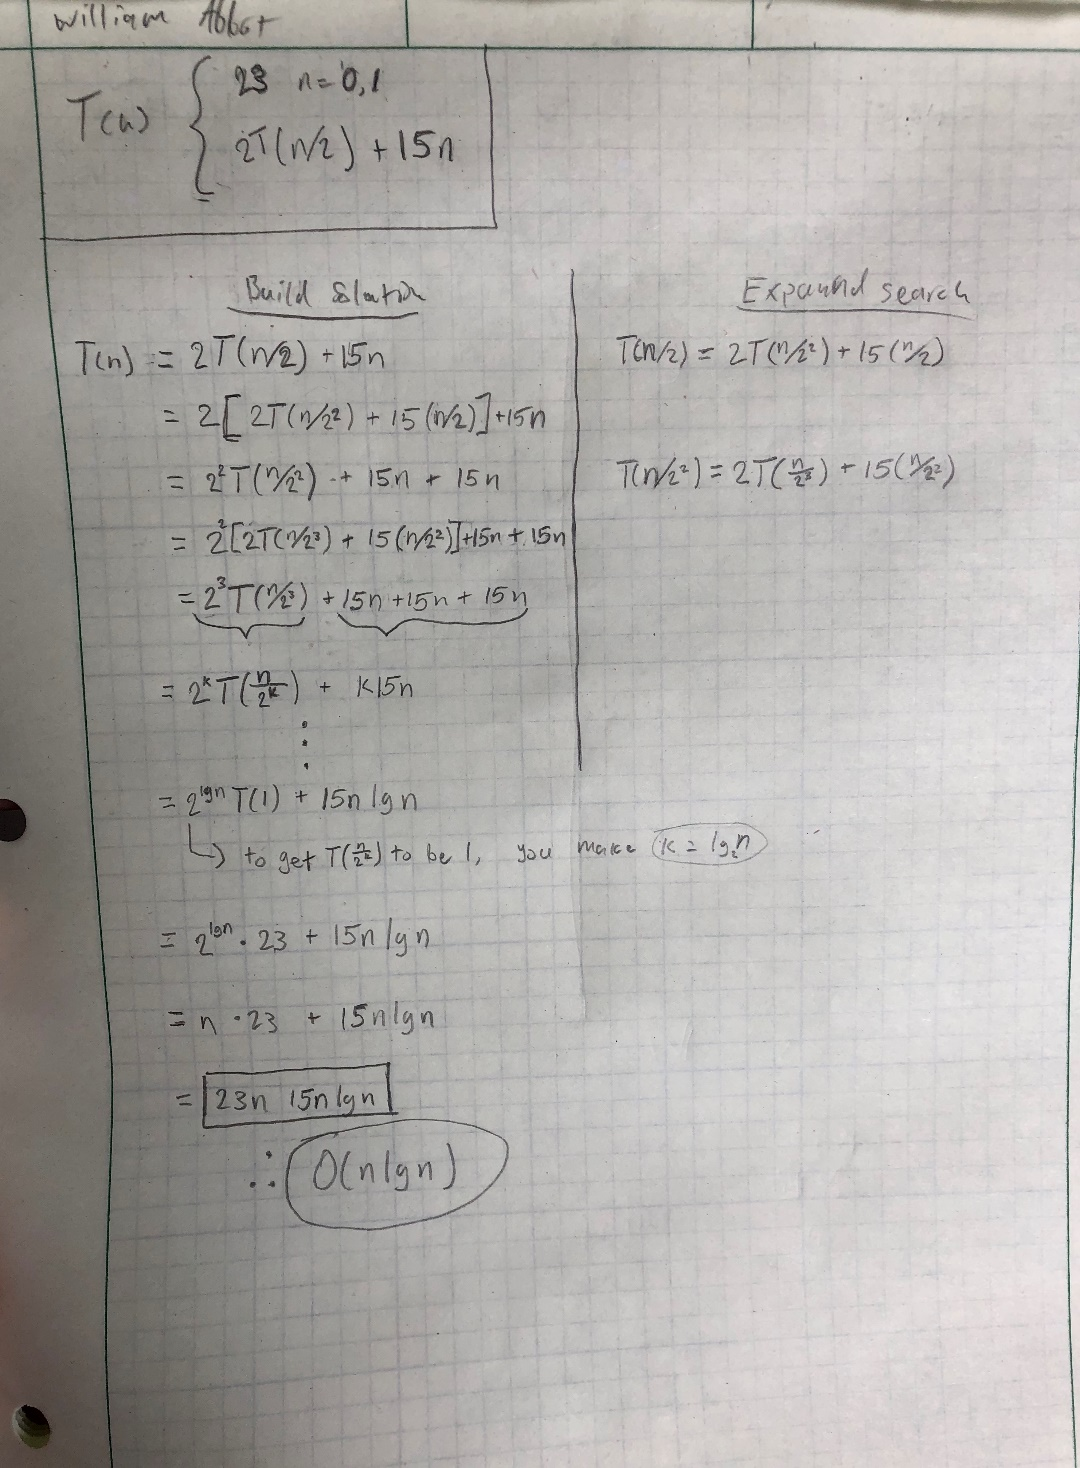 William Abbot
T(n) { 23 n=0,1
2T(n/2) + 15n
Build Solution
T(n) = 2T(n/2) + 15n
= 2[2T(n/2²) + 15(n/2)] + 15n
= 2²T(n/2²) + 15n + 15n
= 2²[2T(n/2³) + 15(n/2²)] + 15n + 15n
= 2³T(n/2³) + 15n + 15n + 15n
= 2ᵏT(n/2ᵏ) + K15n
⋮
= 2^lgn T(1) + 15n lgn
↳ to get T(n/2ᵏ) to be 1, you make K = lg₂n
= 2^lgn · 23 + 15n lgn
= n · 23 + 15n lgn
= 23n 15n lgn
∴ O(n lgn)
Expound search
T(n/2) = 2T(n/2²) + 15(n/2)
T(n/2²) = 2T(n/2³) + 15(n/2²)